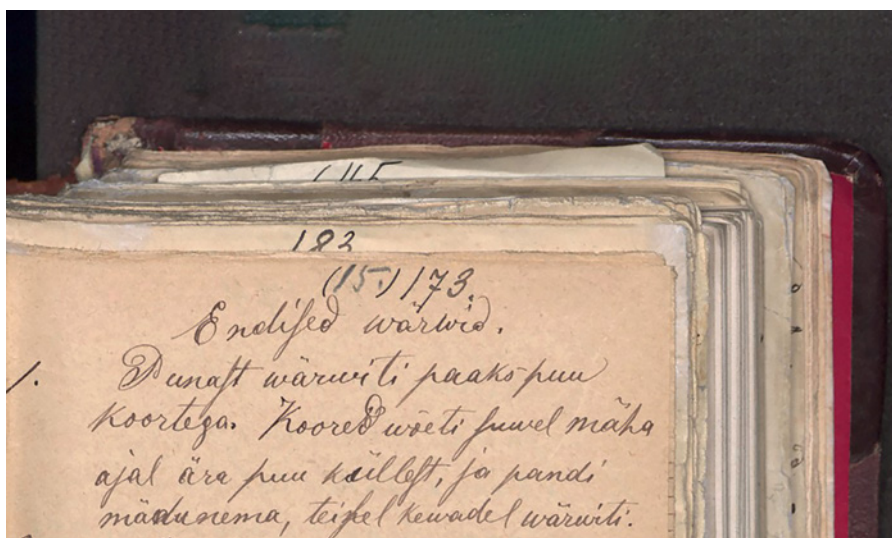 145
182
(15.) 173.
Endiſed wärwid.
1. Punaſt wärwiti paakspuu
koortega. Koored wõeti ſuwel mäha
ajal ära puu külleſt, ja pandi
mädunema, teiſel kewadel wärwiti.